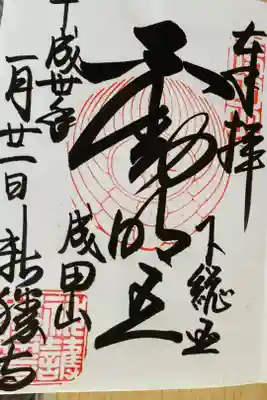 奉拝
下総国
不動明王
成田山
平成卅年
一月廿一日新勝寺